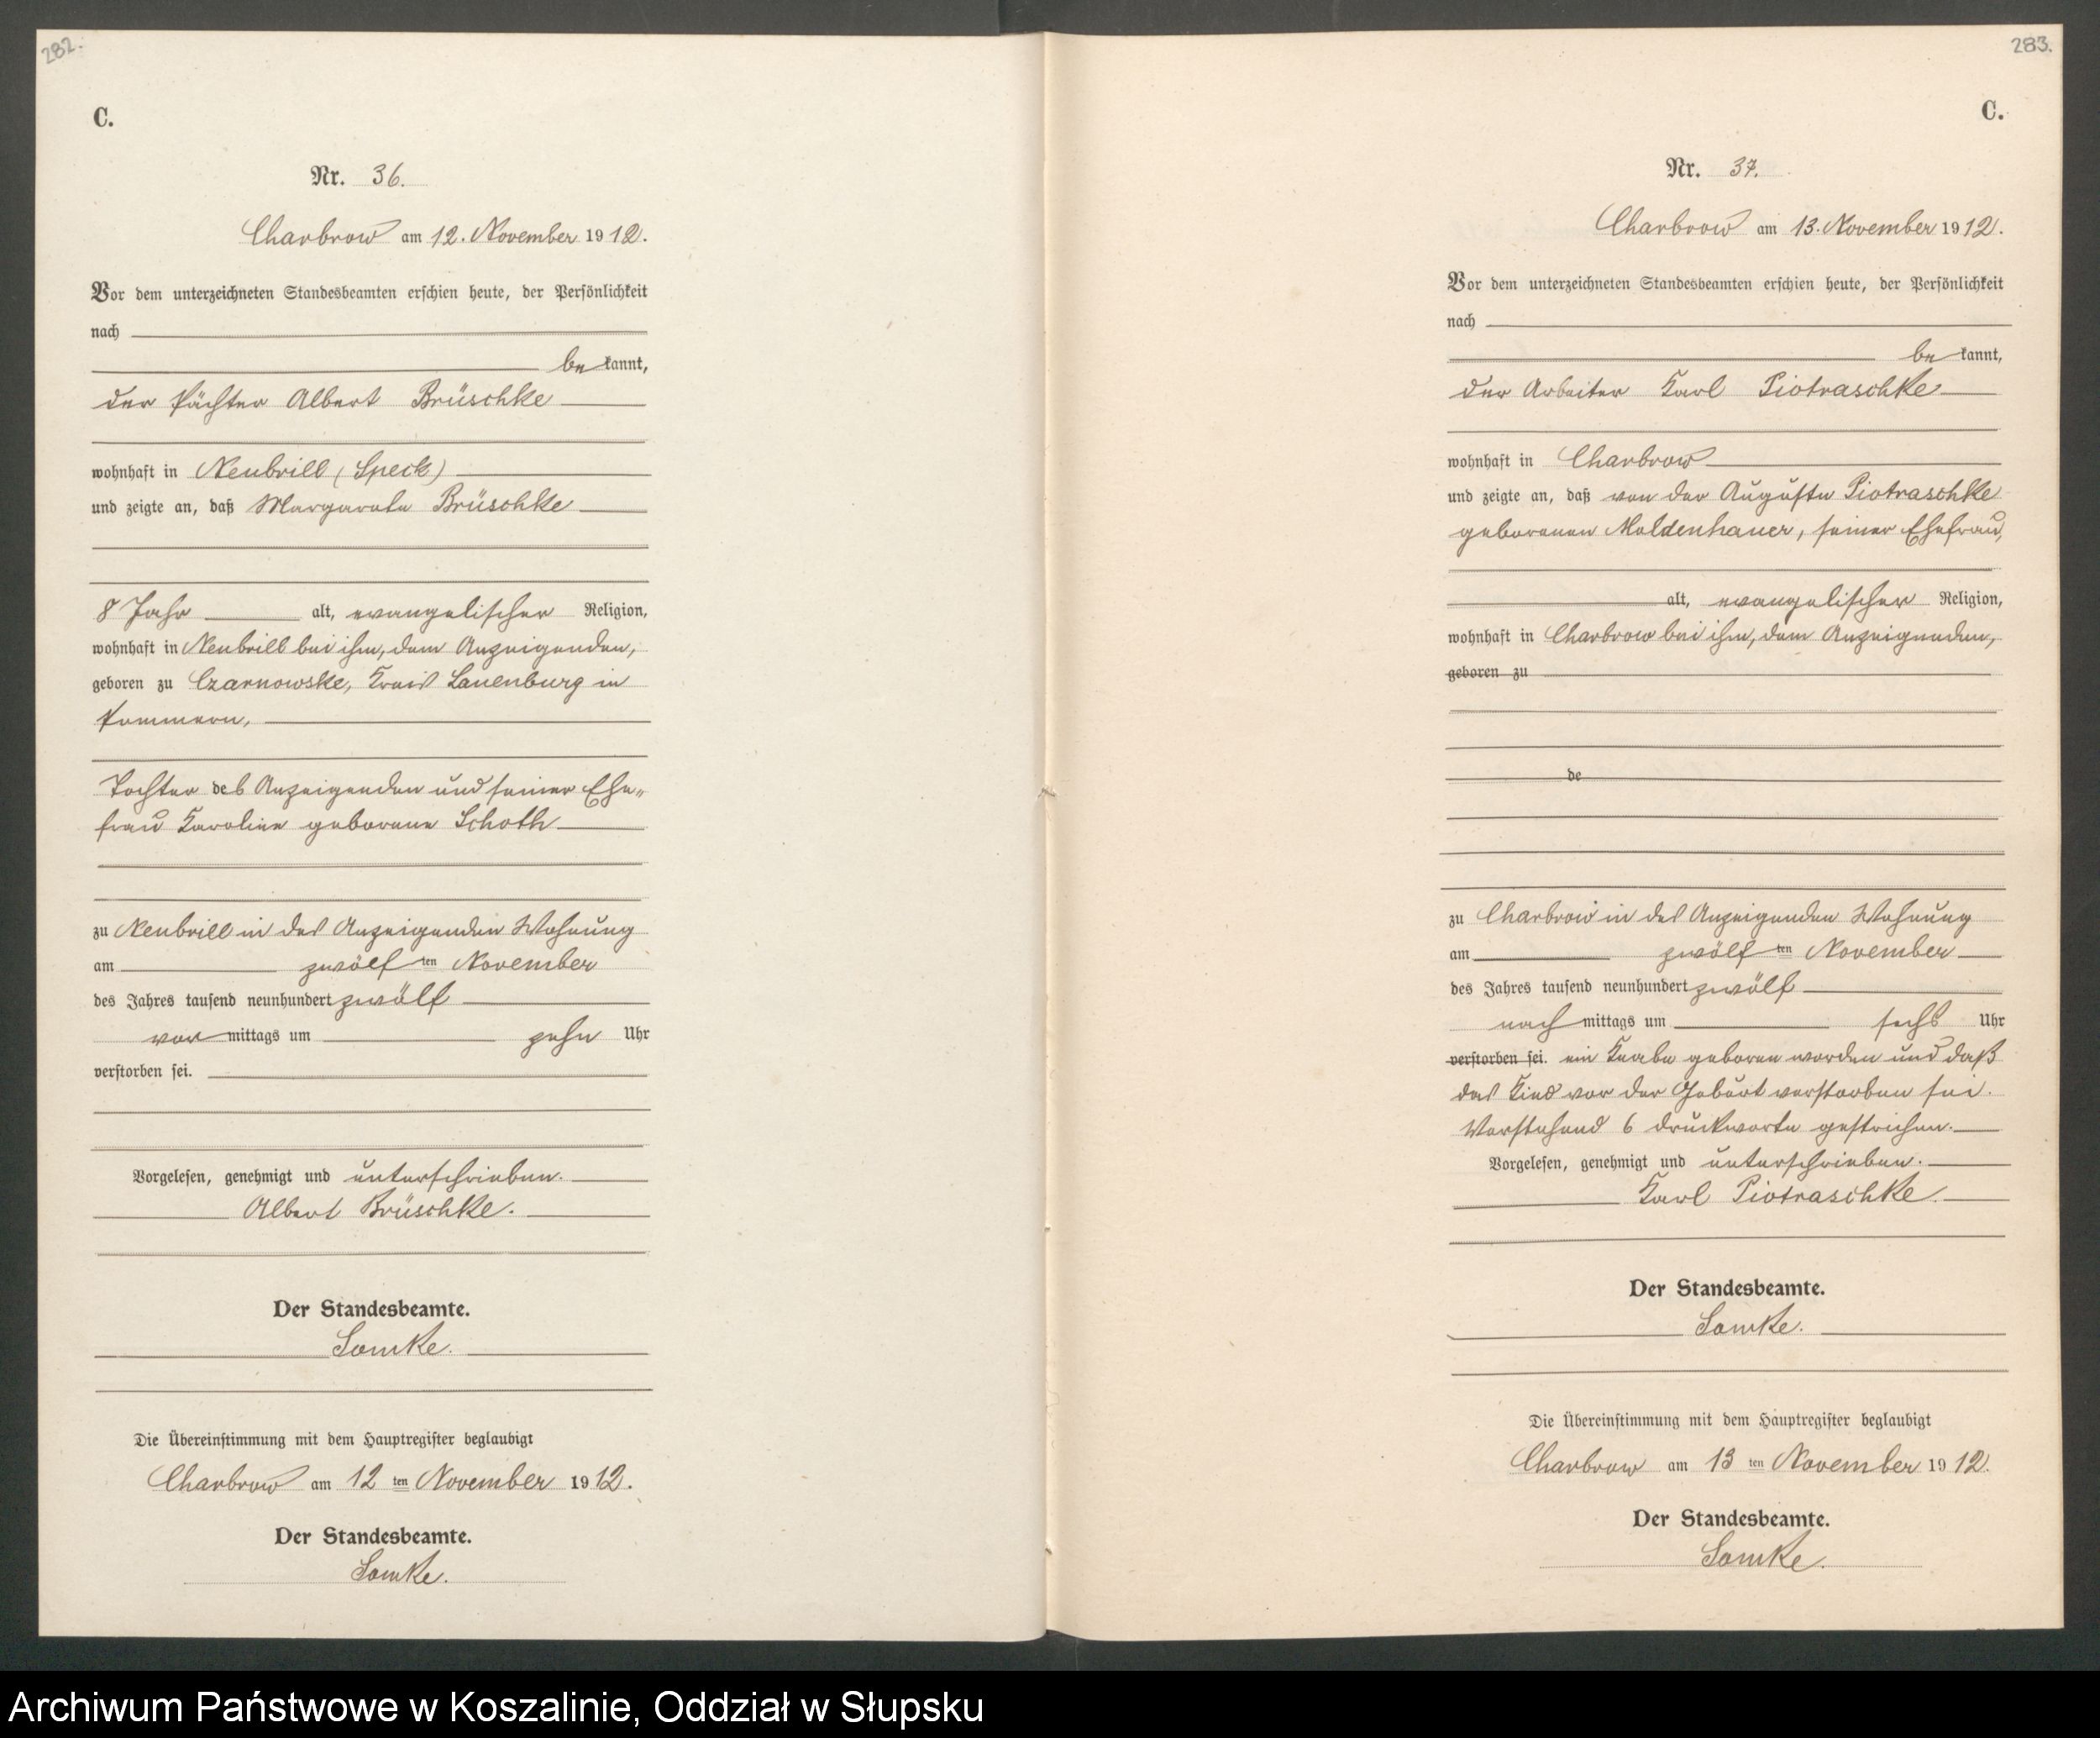 282.
C.
Nr. 36.
Charbrow am 12. November 1912.
Vor dem unterzeichneten Standesbeamten erschien heute, der Persönlichkeit
nach
be kannt,
der Pächter Albert Brüschke
wohnhaft in Neubrill (Speck)
und zeigte an, daß Margarete Brüschke
8 Jahr alt, evangelischer Religion,
wohnhaft in Neubrill bei ihm, dem Anzeigenden,
geboren zu Czarnowske, Kreis Lauenburg in
Pommern,
Tochter des Anzeigenden und seiner Ehe„
frau Karoline geborene Schoth
zu Neubrill in des Anzeigenden Wohnung
am zwölf ten November
des Jahres tausend neunhundert zwölf
vor mittags um zehn Uhr
verstorben sei.
Vorgelesen, genehmigt und unterschrieben.
Albert Brüschke.
Der Standesbeamte.
Lomke.
Die Übereinstimmung mit dem Hauptregister beglaubigt
Charbrow am 12 ten November 1912.
Der Standesbeamte.
Lomke.
283.
C.
Nr. 37.
Charbrow am 13. November 1912.
Vor dem unterzeichneten Standesbeamten erschien heute, der Persönlichkeit
nach
be kannt,
der Arbeiter Karl Piotraschke
wohnhaft in Charbrow
und zeigte an, daß von der Auguste Piotraschke
geborenen Moldenhauer, seiner Ehefrau,
alt, evangelischer Religion,
wohnhaft in Charbrow bei ihm, dem Anzeigenden,
geboren zu
de
zu Charbrow in des Anzeigenden Wohnung
am zwölf ten November
des Jahres tausend neunhundert zwölf
nach mittags um sechs Uhr
verstorben sei. ein Knabe geboren worden und daß
das Kind vor der Geburt verstorben sei.
Vorstehend 6 Druckworte gestrichen.
Vorgelesen, genehmigt und unterschrieben.
Karl Piotraschke.
Der Standesbeamte.
Lomke.
Die Übereinstimmung mit dem Hauptregister beglaubigt
Charbrow am 13 ten November 1912.
Der Standesbeamte.
Lomke.
Archiwum Państwowe w Koszalinie, Oddział w Słupsku